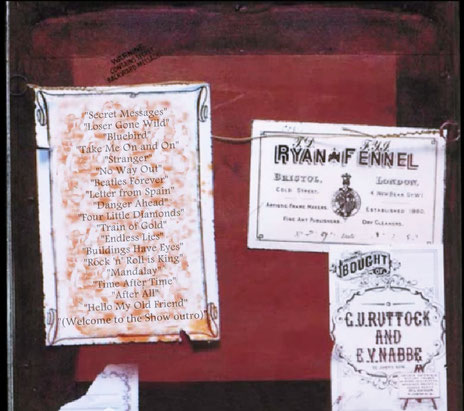 "Secret Messages"
"Loser Gone Wild"
"Bluebird"
"Take Me On and On"
"Stranger"
"No Way Out"
"Beatles Forever"
"Letter from Spain"
"Danger Ahead"
"Four Little Diamonds"
"Train of Gold"
"Endless Lies"
"Buildings Have Eyes"
"Rock 'n' Roll is King"
"Mandalay"
"Time After Time"
"After All"
"Hello My Old Friend"
"(Welcome to the Show outro)"
RYAN FENNEL
BRISTOL, LONDON,
COLD STREET.
ARTISTIC FRAME MAKERS ESTABLISHED
FINE ART PUBLISHERS DRY CLEANERS.
BOUGHT
OF
G.U.RUTTOCK
AND
E.V.NABBE